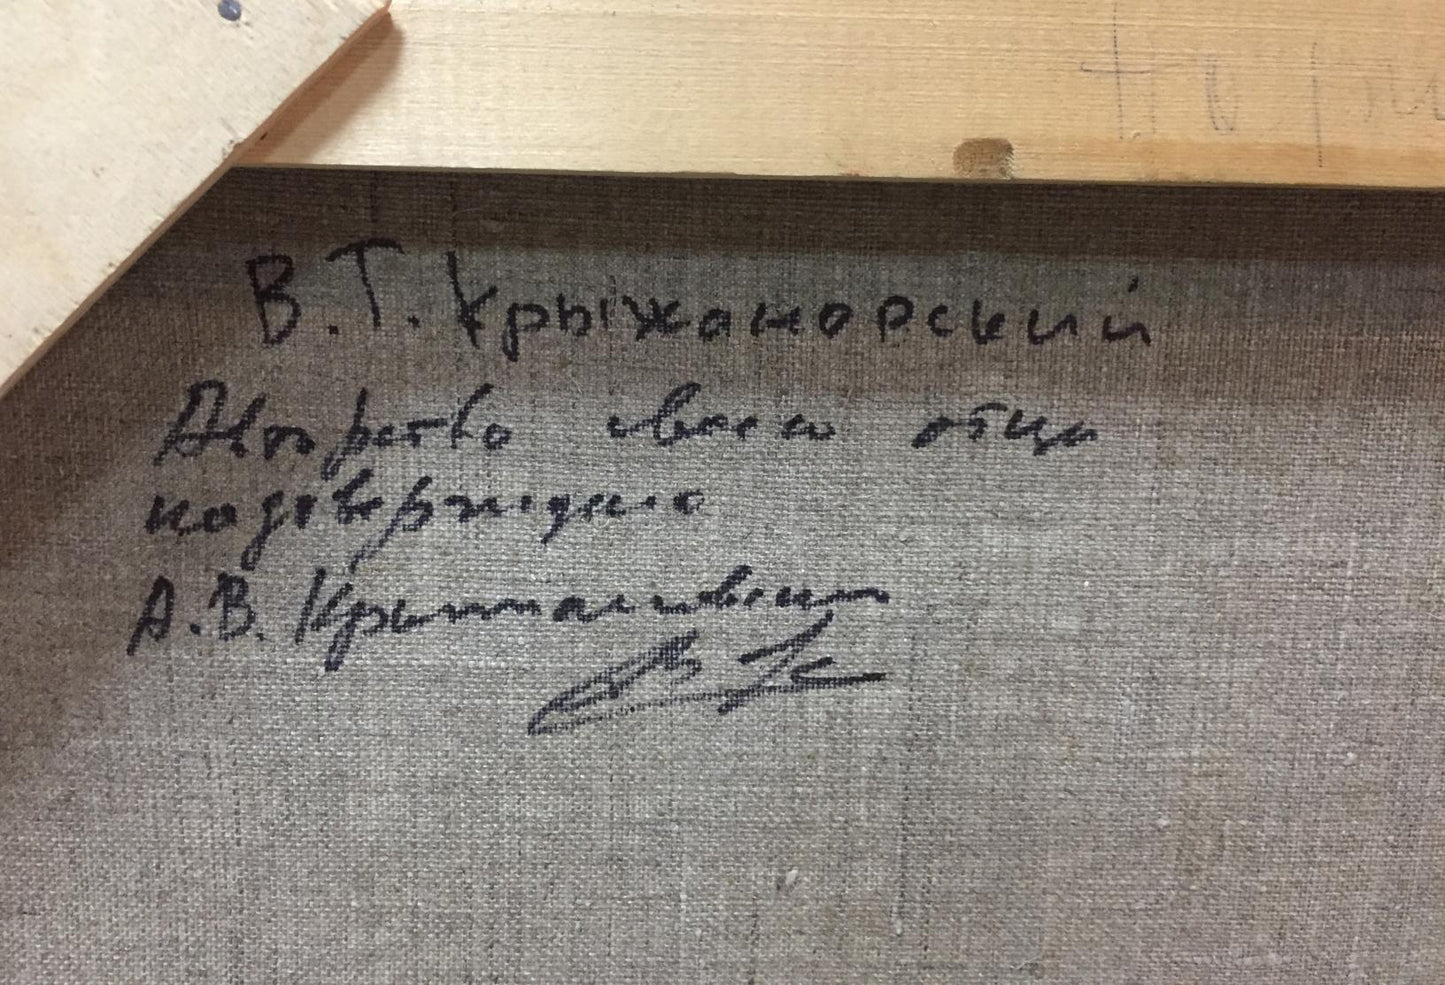 В.Т. Крыжановский
Авторство своего отца
подтверждаю
А.В. Крыжановский